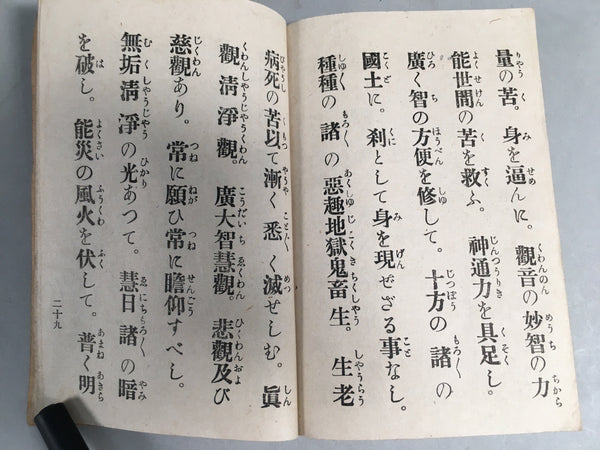 量の苦。身を逼んに。觀音の妙智の力
能世間の苦を救ふ。神通力を具足し。
廣く智の方便を修して。十方の諸の
國土に。刹として身を現ぜざる事なし。
種種の諸の惡趣地獄鬼畜生。生老
病死の苦以て漸く悉く滅せしむ。眞
觀清淨觀。廣大智慧觀。悲觀及び
慈觀あり。常に願ひ常に瞻仰すべし。
無垢清淨の光あつて。慧日諸の暗
を破し。能災の風火を伏して。普く明
二十九